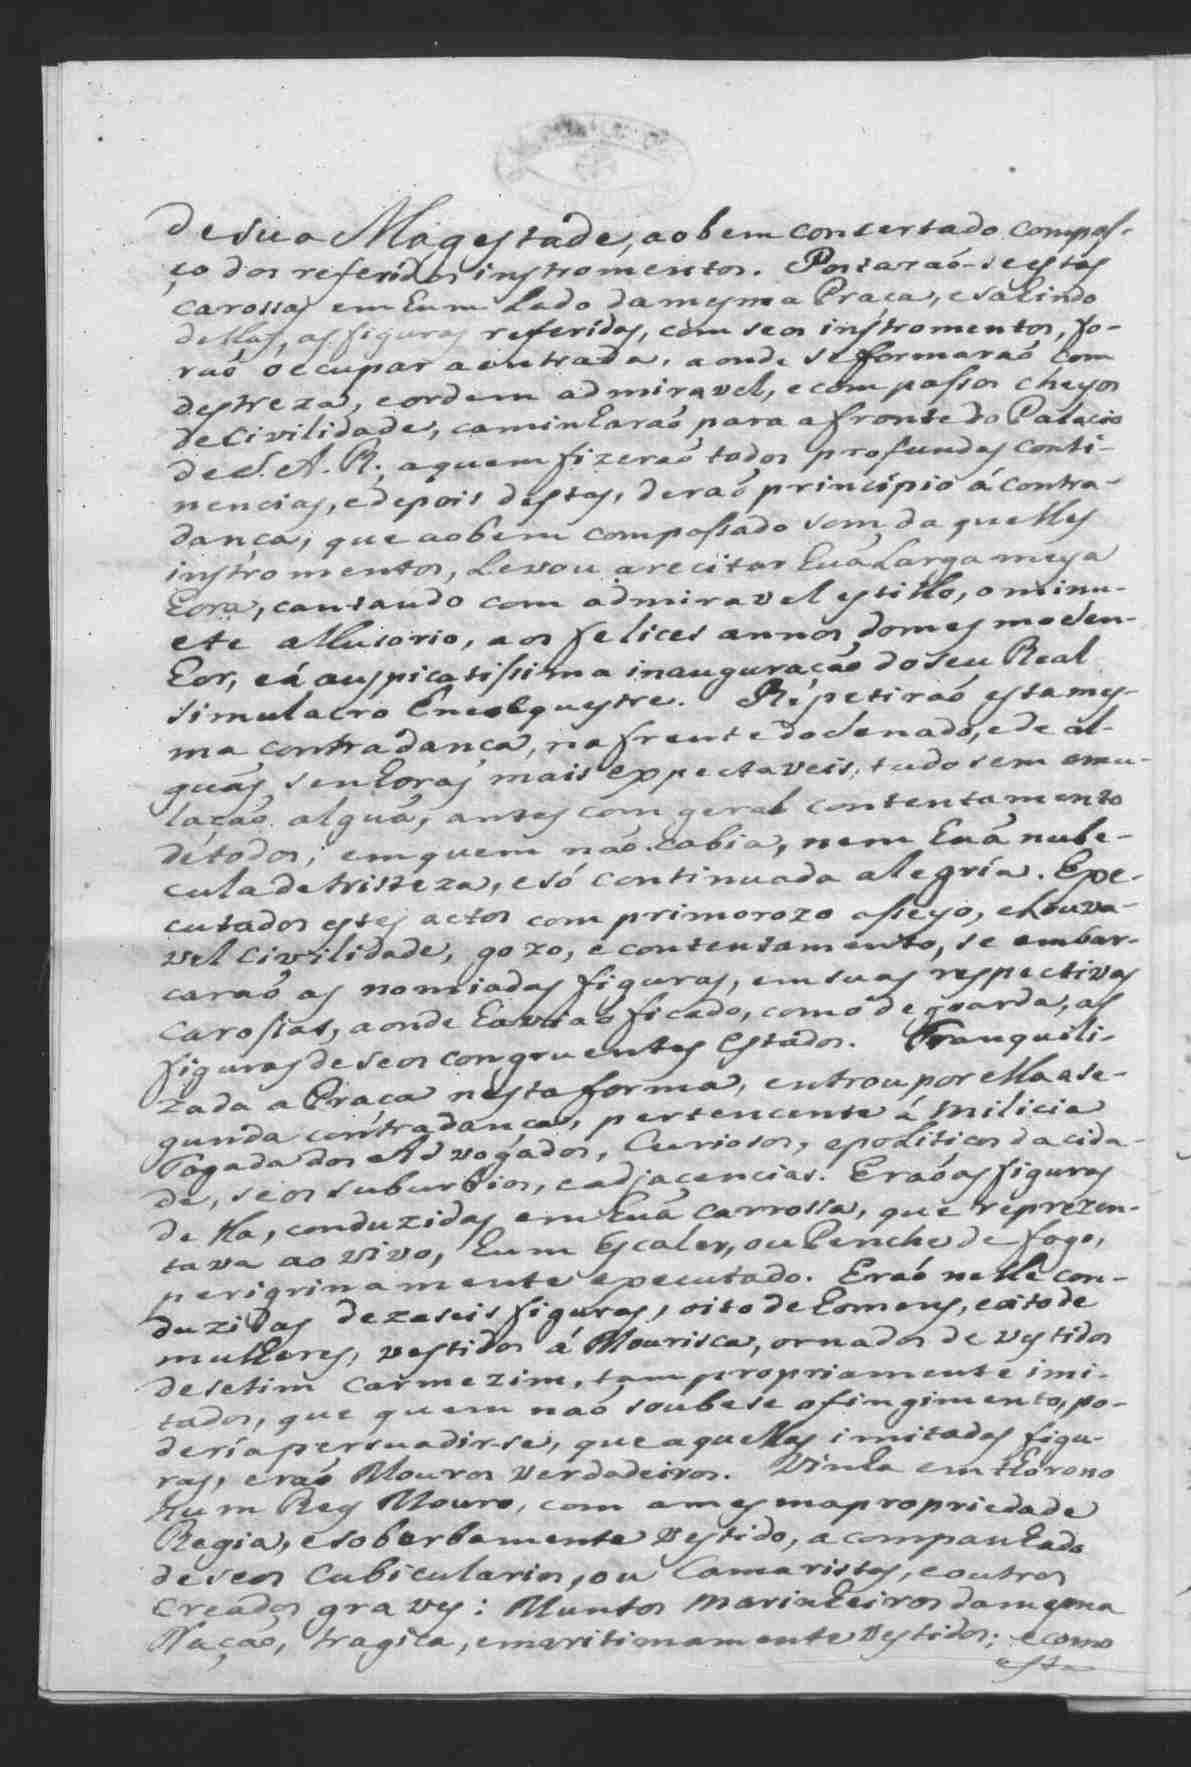 de sua Magestade, ao bem consertado compas-
ço dos referidos instromentos. Postaraó-se estas
carossas em hum Lado da mesma Praça, e sahindo
dellas, as figuras referidas, com seos instromentos, fo-
raó occupar a entrada, aonde se formaraó com
destreza, e ordem admiravel, e com passos cheyos
de Civilidade, caminharaó para a fronte do Palacio
de S. A. R., a quem fizeraó todos profundas conti-
nencias, e depois destas, deraó principio á contra-
dança, que ao bem compassado som, da quelles
instromentos, Levou a recitar huá Larga meya
hora, cantando com admiravel estillo, o minu-
ete allusorio, aos felices annos do mesmo Sen-
hor, e á auspicatissima inauguração do seu Real
simulacro Eneo equestre. Repetiraó esta mes-
ma contradança, na frente do Senado, e de al-
guás senhoras mais expectaveis, tudo sem emu-
laçaó alguá, antes com geral contentamento
de todos; em quem naó cabia, nem huá nube-
cula de tristeza, e só continuada alegría. Exe-
cutados estes actos com primorozo asseyo, e louva-
vel civilidade, gozo, e contentamento, se embar-
caraó as nomiadas figuras, em suas respectivas
Carossas, aonde haviaó ficado, como de goarda, as
figuras de seos congruentes Estados. Tranquili-
zada a Praça nesta forma, entrou por ella a se-
gunda contradança, pertencente á Milicia
Togada dos Advogados, Curiosos, e politicos da cida-
de, seos suburbios, e adjacencias. Eraó as figuras
della, conduzidas em huá carrossa, que reprezen-
tava ao vivo, hum Escaler, ou Penche de fogo,
perigrinamente executado. Eraó nelle con-
duzidas dezaseis figuras, oito de homens, e oito de
mulheres, vestidos á Mourisca, ornados de vestidos
de setim carmezim, tam propriamente imi-
tados, que quem naó soubese o fingimento, po-
dería persuadir-se, que aquellas imitadas figu-
ras, eraó Mouros verdadeiros. Vinha em throno
hum Rey Mouro, com a mesma propriedade
Regia, e soberbamente vestido, acompanhado
de seos Cubicularios, ou Camaristas, e outros
Creados graves: Muntos marinheiros da mesma
Naçaó, tragica, e maritimamente vestidos; e como
esta